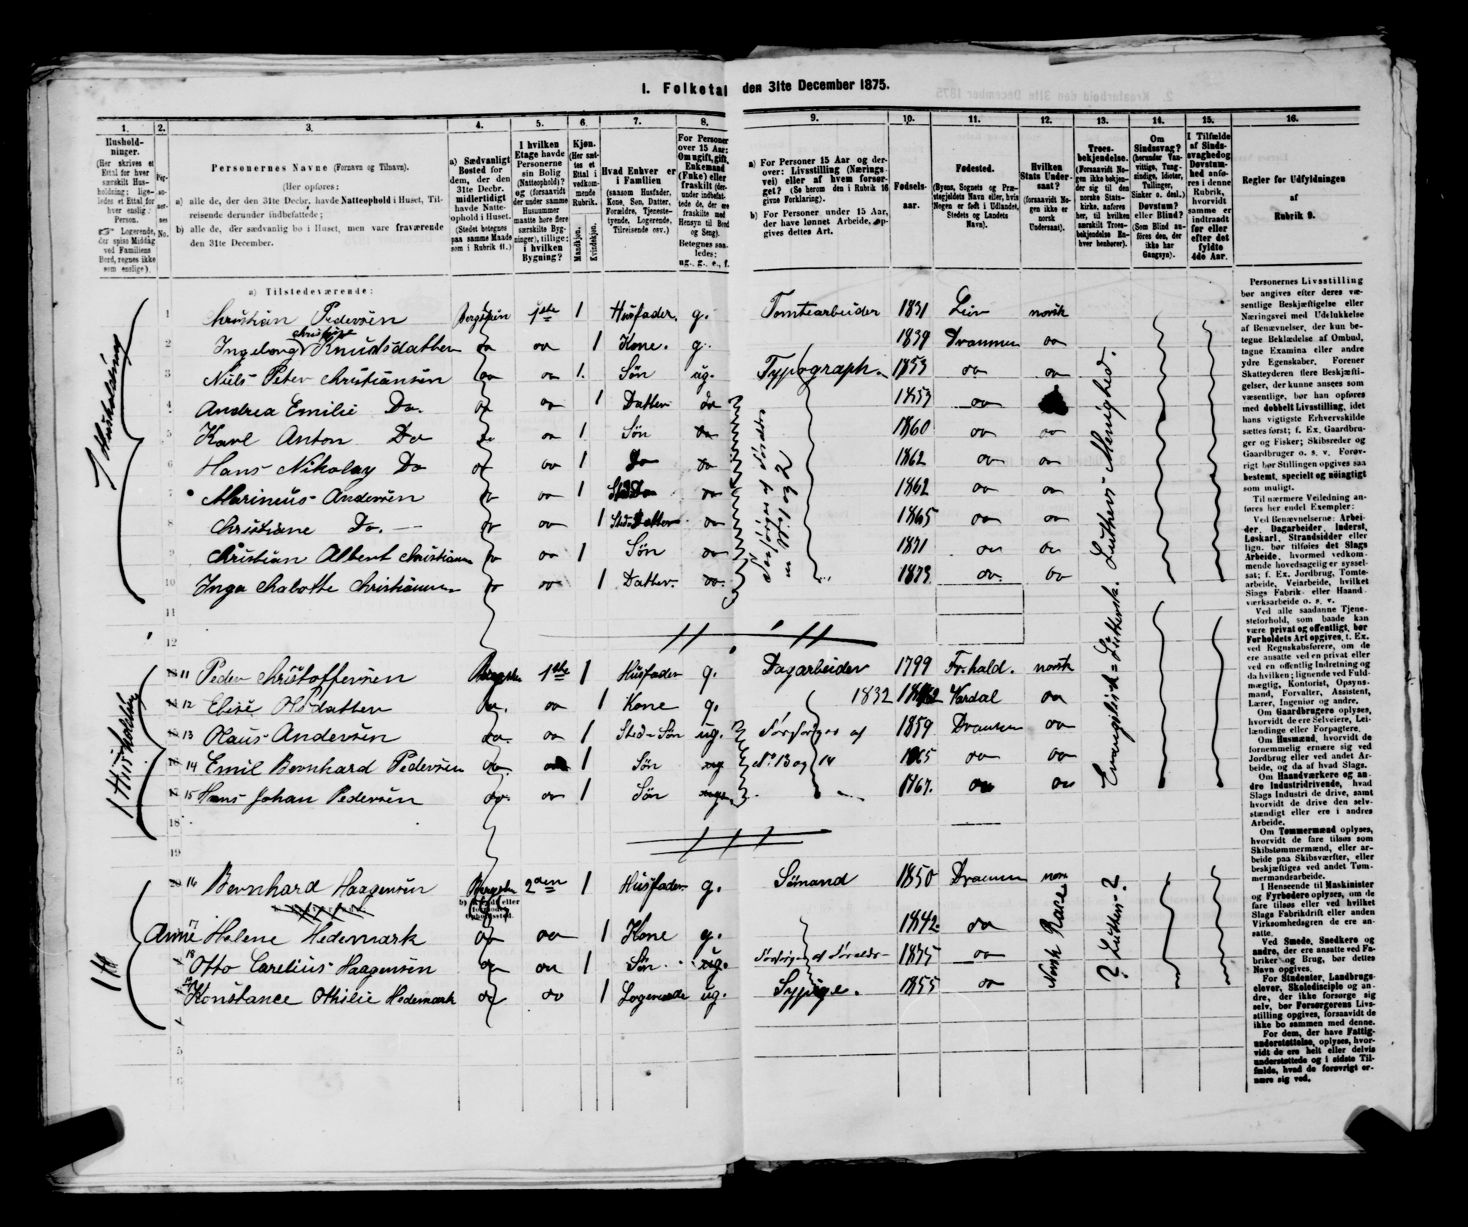 1. Folketal den 31te December 1875.
1. 2. 3. 4. 5. 6. 7. 8. 9. 10. 11. 12. 13. 14. 15. 16.
Hushold-
ninger.
(Her skrives et
Ettal for hver
særskilt Hus-
holdning; lige-
ledes et Ettal for
hver enslig
Person.
Logerende,
der spise Middag
ved Familiens
Bord, regnes ikke
som enslige).
Per-
so-
ner-
nes
No.
Personernes Navne (Fornavn og Tilnavn).
(Her opføres:
a) alle de, der den 31te Decbr. havde Natteophold i Huset, Til-
reisende derunder indbefattede;
b) alle de, der sædvanlig bo i Huset, men vare fraværende
den 31te December.
a) Sædvanligt
Bosted for
dem, der den
31te Decbr.
midlertidigt
havde Natte-
ophold i Huset.
(Stedet betegnes
paa samme Maade
som i Rubrik 11.)
I hvilken
Etage havde
Personerne
sin Bolig
(Natteophold)?
og (forsaavidt
der under samme
Husnummer
maatte høre flere
særskilte Byg-
ninger), tillige:
i hvilken
Bygning?
Kjøn.
(Her sæt-
tes et
Ettal i
vedkom-
mende
Rubrik.
Mandkjøn.
Kvindekjøn.
Hvad Enhver er
i Familien
(saasom Husfader,
Kone, Søn, Datter,
Forældre, Tjeneste-
tyende, Logerende,
Tilreisende osv.)
For Personer
over 15 Aar:
Om ugift, gift,
Enkemand
(Enke) eller
fraskilt (der-
under indbefat-
tede de, der ere
fraskilte med
Hensyn til Bord
og Seng).
Betegnes saa-
ledes:
ug., g., e., f.
a) For Personer 15 Aar og der-
over: Livsstilling (Nærings-
vei) eller af hvem forsør-
get? (Se herom den i Rubrik 16
givne Forklaring).
b) For Personer under 15 Aar,
der have lønnet Arbeide, op-
gives dettes Art.
Fødsels-
aar.
Fødested.
(Byens, Sognets og Præ-
stegjeldets Navn eller, hvis
Nogen er født i Udlandet,
Stedets og Landets
Navn).
Hvilken
Stats Under-
saat?
(forsaavidt No-
gen ikke er
norsk
Undersaat).
Troes-
bekjendelse.
(Forsaavidt No-
gen ikke bekjen-
der sig til den
norske Stats-
kirke, anføres
her, til hvilken
særskilt Troes-
bekjendelse En-
hver henhører).
Om
Sindssvag?
(herunder Van-
vittige, Tung-
sindige, Idioter,
Tullinger,
Sinker o. desl.)
Døvstum?
eller Blind?
(Som Blind an-
føres den, der
ikke har
Gangsyn).
I Tilfælde
af Sinds-
svaghed og
Døvstum-
hed anfø-
res i denne
Rubrik,
hvorvidt
samme er
indtraadt
før eller
efter det
fyldte
4de Aar.
Regler for Udfyldningen
af
Rubrik 9.
a) Tilstedeværende:
1 Husholdning
1 Christian Pedersen Bergstien 1ste 1 Husfader. g. Tomtearbeider 1831 Lier norsk
2 Ingeborg Christine Knudsdatter do do 1 Kone. g. 1839 Drammen do
3 Niels Peter Christiansen do do 1. Søn ug. Typograph. 1853 do do
4 Andrea Emilie Do. do do 1 Datter do 1853 do
5 Karl Anton Do do do 1 Søn do 1860 do do
6 Hans Nikolay Do do do 1 Do do 1862 do do
7 Marineus Andersen do do 1 do 1862 do do
8 Christiane Do. do do 1 Sted-Datter do 1865 do do
9 Christian Albert Christiansen do do 1 Søn do 1871 do do
10 Inga Malotte Christiansen do do 1 Datter. do. 1873 do. do
Forsørges af Forældre
No. 1 og 2
Evangelisk = Luthersk. Luthers Menighed.
11
12
1 Husholdning
11 Peder Christoffersen Bergstien 1ste 1 Husfader g. Dagarbeider 1799 Fr.hald. norsk
12 Elise Olsdatter do. do 1 Kone g. 1832 Vardal do
13 Olaus Andersen do. do 1 Sted-Søn ug. Forsørges af 1859 Drammen do
14 Emil Bernhard Pedersen do. do 1 Søn ug No 13 og 14 1865 do do
15 Hans Johan Pedersen do. do 1 Søn 1867. do do
18
19
16 Bernhard Haagensen Bergstien 2den 1 Husfader g. Sømand 1850 Drammen norsk
17 Anne Helene Hedemark do do 1 Kone g. 1842. do
18 Otto Carelius Haagensen do do 1 Søn ug. Forsørges af Forældre 1875 do
Konstance Othilie Hedemark do do 1 Logerende ug. Sypige. 1855 do
Norsk Race
? Luthers ?
5
6
Personernes Livsstilling
bør angives efter deres væ-
sentlige Beskjæftigelse eller
Næringsvei med Udelukkelse
af Benævnelser, der kun be-
tegne Beklædelse af Ombud,
tagne Examina eller andre
ydre Egenskaber. Forener
Skatteyderen flere Beskjæfti-
gelser, der kunne ansees som
væsentlige, bør han opføres
med dobbelt Livsstilling, idet
hans vigtigste Erhvervskilde
sættes først; f. Ex. Gaardbru-
ger og Fisker; Skibsreder og
Gaardbruger o. s. v. Forøv-
rigt bør Stillingen opgives saa
bestemt, specielt og nøiagtigt
som muligt.
Til nærmere Veiledning an-
føres her endel Exempler:
Ved Benævnelserne: Arbei-
der, Dagarbeider, Inderst,
Løskarl, Strandsidder eller
lign. bør tilføies det Slags
Arbeide, hvormed vedkom-
mende hovedsagelig er syssel-
sat; f. Ex. Jordbrug, Tomte-
arbeide, Veiarbeide, hvilket
Slags Fabrik- eller Haand-
værksarbeide o. s. v.
Ved alle saadanne Tjene-
steforhold, som baade kan
være privat og offentligt, bør
Forholdets Art opgives, t. Ex.
ved Regnskabsførere, om de
ere ansatte ved en privat eller
ved en offentlig Indretning og
da hvilken; lignende ved Fuld-
mægtig, Kontorist, Opsyns-
mand, Forvalter, Assistent,
Lærer, Ingeniør og andre.
Om Gaardbrugere oplyses,
hvorvidt de ere Selveiere, Lei-
lændinge eller Forpagtere.
Om Husmænd, hvorvidt de
fornemmelig ernære sig ved
Jordbrug eller ved andet Ar-
beide, og da af hvad Slags.
Om Haandværkere og an-
dre Industridrivende, hvad
Slags Industri de drive, samt
hvorvidt de drive den selv-
stændigt eller ere i andres
Arbeide.
Om Tømmermænd oplyses,
hvorvidt de fare tilsøs som
Skibstømmermænd, eller ar-
beide paa Skibsværfter, eller
beskjæftiges ved andet Tøm-
mermandsarbeide.
I Henseende til Maskinister
og Fyrbødere oplyses, om de
fare tilsøs eller ved hvilket
Slags Fabrikdrift eller anden
Virksomhedsgren de ere an-
satte.
Ved Smede, Snedkere og
andre, der ere ansatte ved Fa-
briker og Brug, bør dettes
Navn opgives.
For Studenter, Landbrugs-
elever, Skoledisciple og an-
dre, der ikke forsørge sig
selv, bør Forsørgerens Livs-
stilling opgives, forsaavidt de
ikke bo sammen med denne.
For dem, der have Fattig-
understøttelse, oplyses, hvor-
vidt de ere helt eller delvis
understøttede og i sidste Til-
fælde, hvad de forøvrigt er-
nære sig ved.